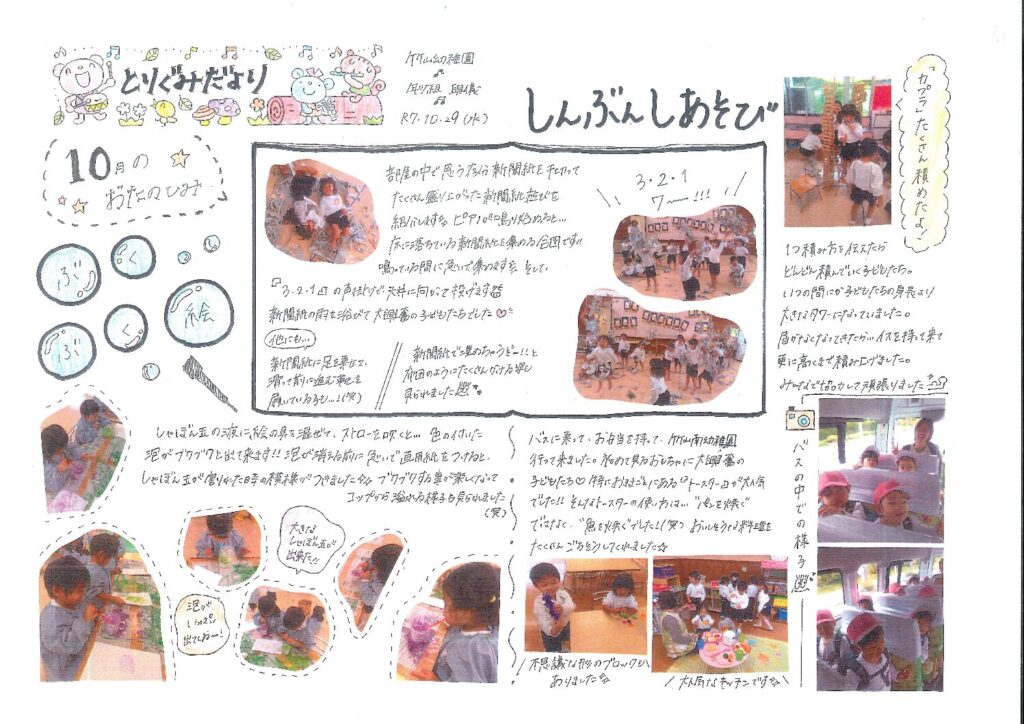 とりぐみだより
竹山幼稚園
R7.10.29(水)
10月の
おたのしみ
しんぶんしあそび
部屋の中で思う存分新聞紙を千切って
たくさん盛り上がった新聞紙遊びを
紹介します☆ ピアノが鳴り始めると…
床に落ちている新聞紙を集める合図です!!
鳴っている間に急いで集めます☆ そして
『3・2・1』の声掛けで、天井に向かって投げます
新聞紙の雨を浴びて大興奮の子どもたちでした♡
3・2・1
ワー!!!
他にも…
新聞紙に足を乗せて、
滑って前に進む事を
願っている子も…!(笑)
新聞紙で埋めちゃうぞー!!と
布団のようにたくさんかける姿も
見られました
「カプラ、たくさん積めたよ」
1つ積み方を伝えたら
どんどん積んでいく子どもたち。
いつの間にか子どもたちの身長より
大きなタワーになっていました。
届かなくなってきたら…イスを持って来て
更に高くまで積み上げました。
みんなで協力して頑張りました
ぶ
く
ぶ
く
絵
しゃぼん玉の液に絵の具を混ぜて、ストローを吹くと… 色の付いた
泡がブクブクと出て来ます!! 泡が消える前に急いで画用紙をつけると、
しゃぼん玉が割れた時の模様がつきました☆ ブクブクする事が楽しくなって
コップから溢れる様子も見られました
(笑)
大きな
しゃぼん玉が
出来た!!
泡が
いっぱい
出てくるー!
バスに乗って、お弁当を持って、竹山南幼稚園
行って来ました。初めて見るおもちゃに大興奮の
子どもたち♡ 特におままごとにある『トースター』が大人気
でした!! そんなトースターの使い方は… “パンを焼く”
ではなく、“魚を焼く”でした!(笑) おいしそうな料理を
たくさんごちそうしてくれました☆
不思議な形のブロックも
ありました☆
大人気なキッチンです☆
バスの中での様子